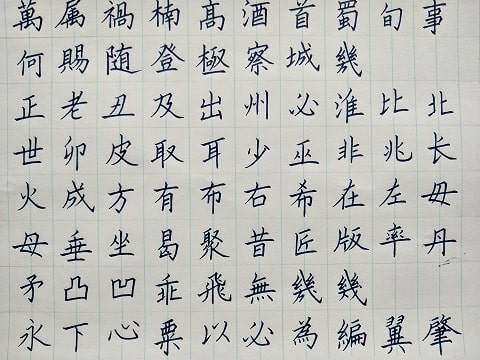 萬属禍楠髙酒首蜀旬事
何賜随登極察城幾
正老丑及出州必淮比北
世卯皮取耳少巫非兆长
火成方有布右希在左毋
母垂坐曷聚昔匠版率丹
矛凸凹乖飛無幾幾
永下心粟以必為編翼肇